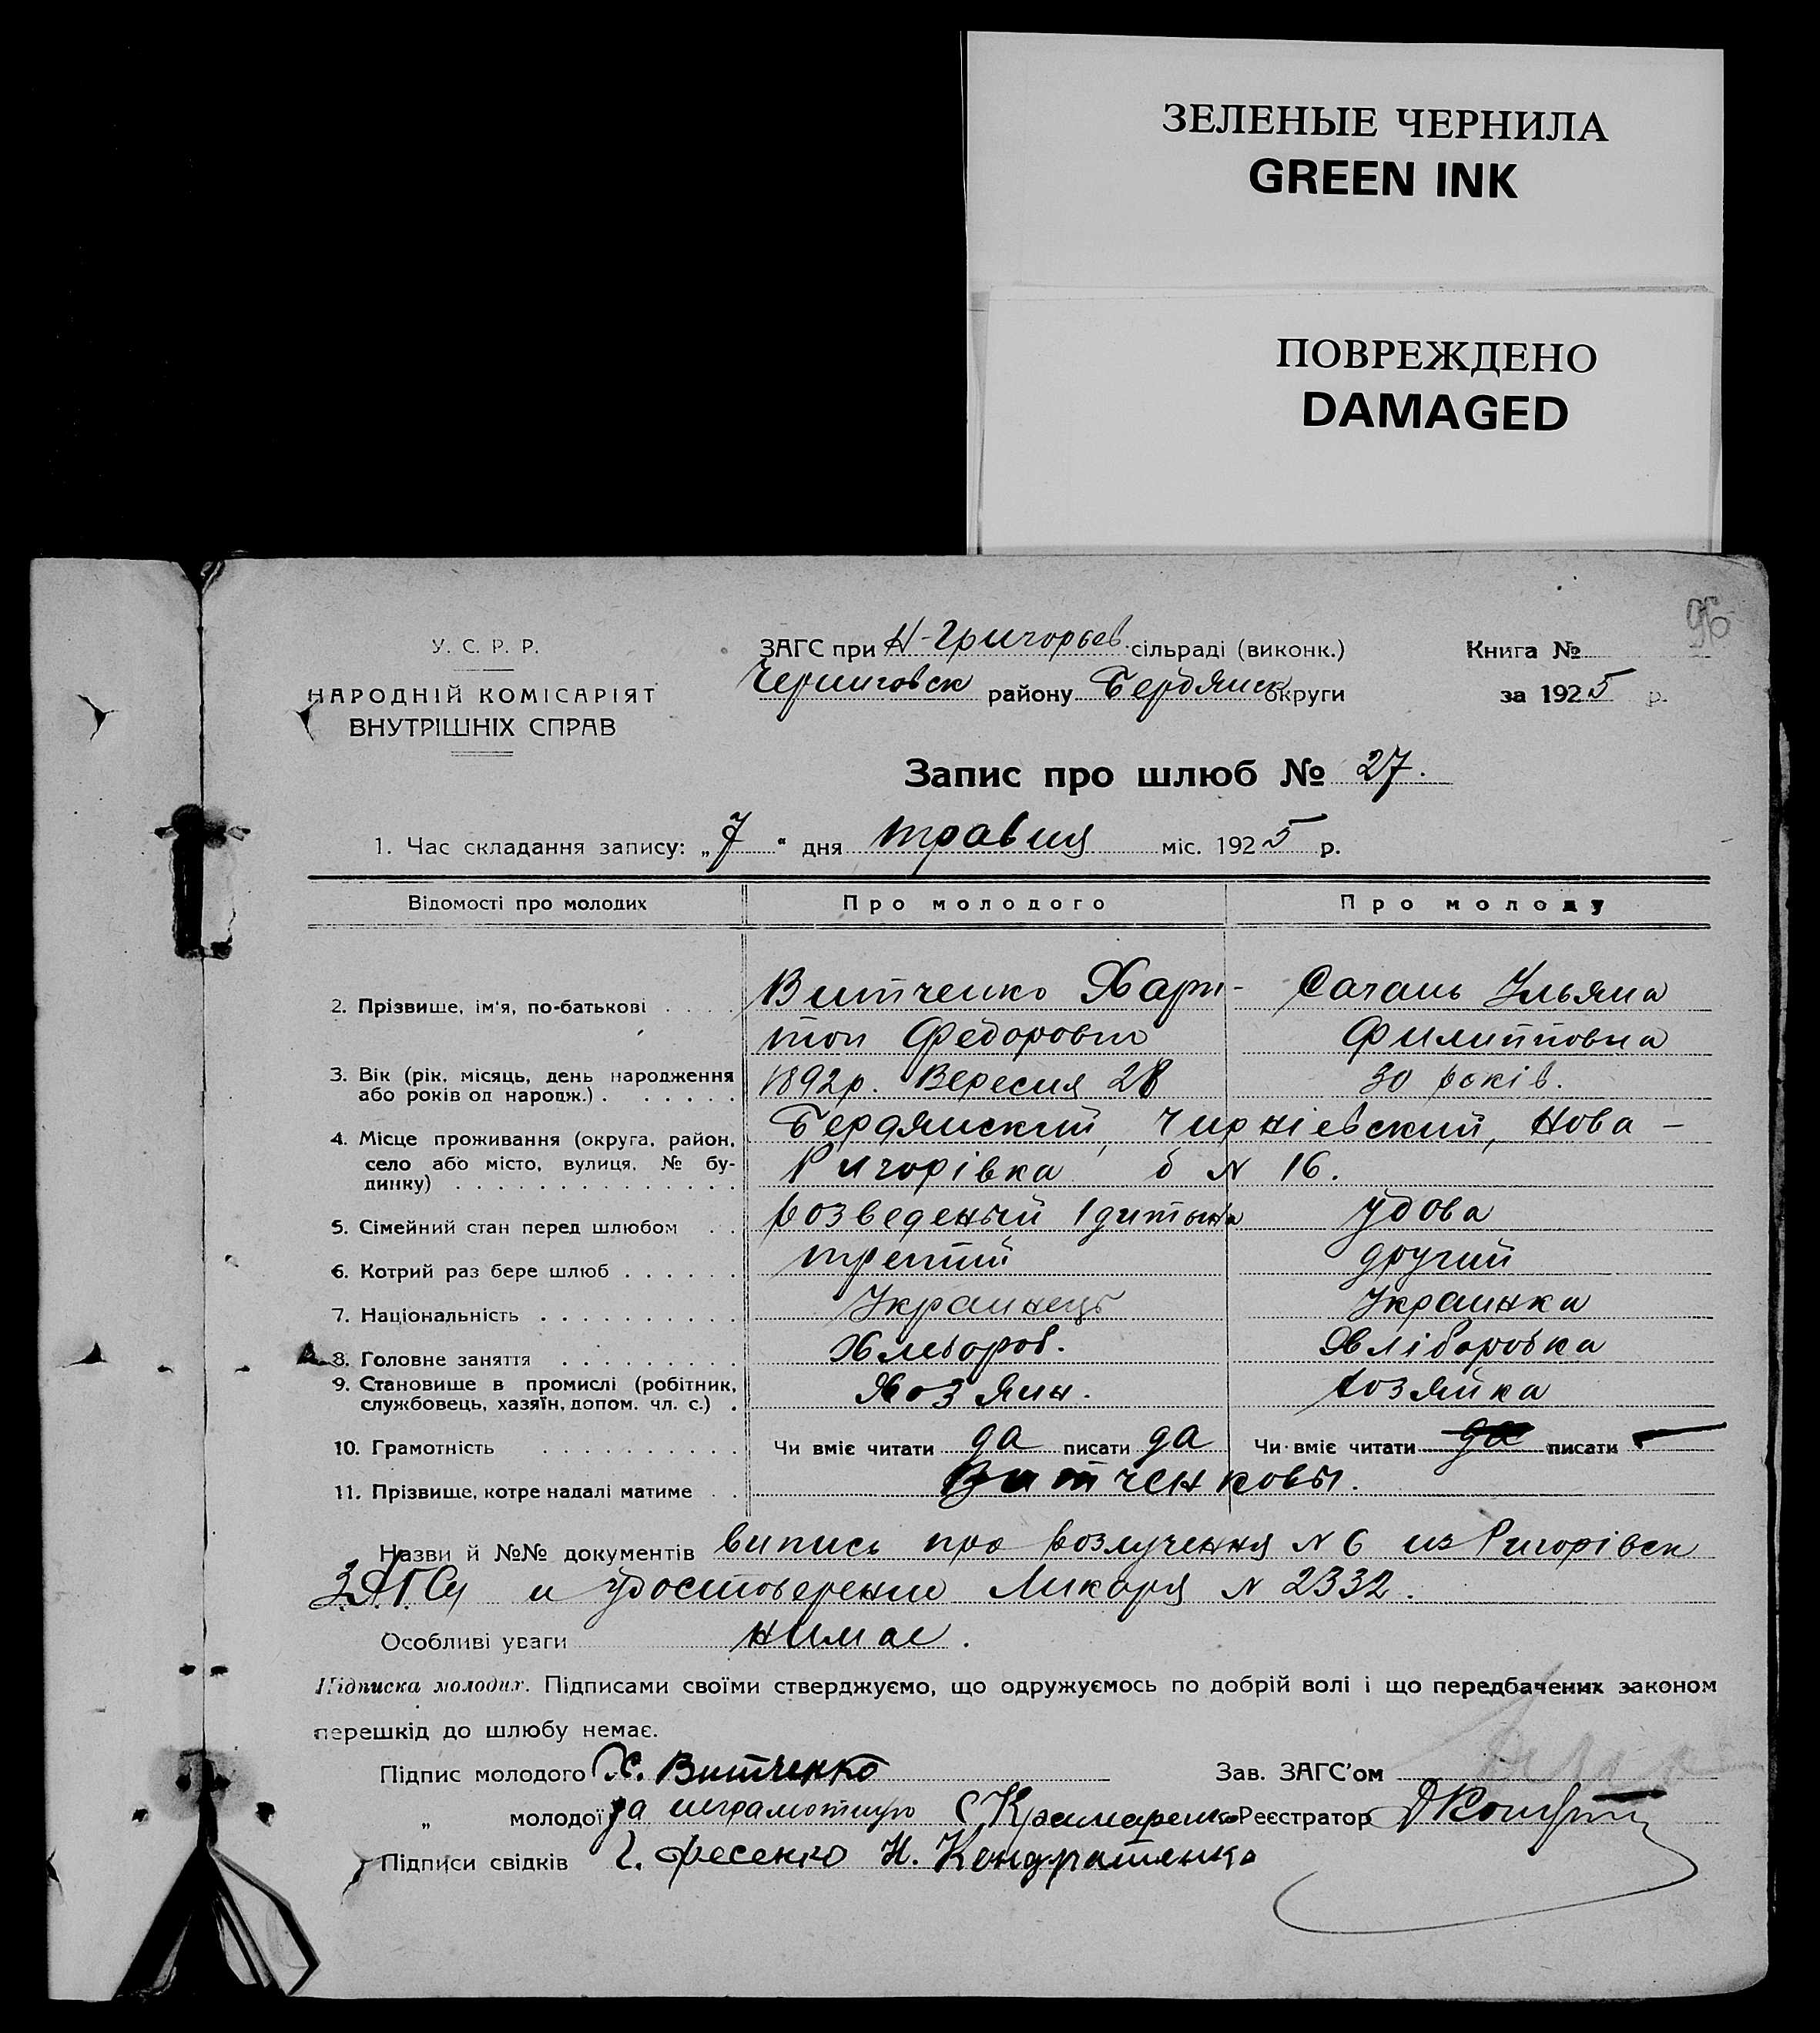 ЗЕЛЕНЫЕ ЧЕРНИЛА
GREEN INK
ПОВРЕЖДЕНО
DAMAGED
96
У. С. Р. Р.
НАРОДНІЙ КОМІСАРІЯТ
ВНУТРІШНІХ СПРАВ
ЗАГС при Н-Григорьев. сільраді (виконк.)
Черниговск району Бердянск округи
Книга №
за 1925 р.
Запис про шлюб № 27.
1. Час складання запису: „7" дня травня міс. 1925 р.
Відомості про молодих Про молодого Про молоду
2. Прізвище, ім'я, по-батькові . . . . Витченко Хари- Сагань Ульяна
тон Федорович Филипповна
3. Вік (рік, місяць, день народження 1892р. Вересня 28 30 років.
або років од народж.) . . . . . .
4. Місце проживання (округа, район, Бердянский, Чирнієвский, Нова-
село або місто, вулиця, № бу- Ригорівка б N 16.
динку) . . . . . . . . . . . . . .
5. Сімейний стан перед шлюбом . . розведеный 1 дитына удова
6. Котрий раз бере шлюб . . . . . . третий другий
7. Національність . . . . . . . . . . Украинець Украинка
8. Головне заняття . . . . . . . . . Хлебороб. Хліборобка
9. Становище в промислі (робітник, Хозяин. Хозяйка
службовець, хазяїн, допом. чл. с.) .
10. Грамотність . . . . . . . . . . Чи вміє читати да писати да Чи вміє читати да писати —
11. Прізвище, котре надалі матиме . . Витченковы.
Назви й №№ документів випись про розлучення N 6 из Ригорівск
З.А.Г.Су и удостоверение Ликаря N 2332.
Особливі уваги нимае.
Підписка молодих. Підписами своїми стверджуємо, що одружуємось по добрій волі і що передбачених законом
перешкід до шлюбу немає.
Підпис молодого Х. Витченко Зав. ЗАГС'ом
„ молодої за неграмотную С Крамаренко Реєстратор
Підписи свідків Г. Фесенко Н. Кондратенко